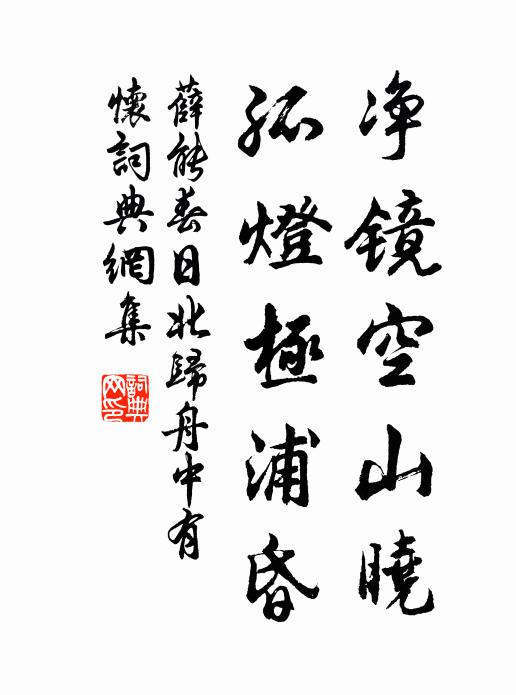 净镜空山曉
孤燈極浦昏
薛能春日北歸舟中有
懷詞典網集
詞典网印